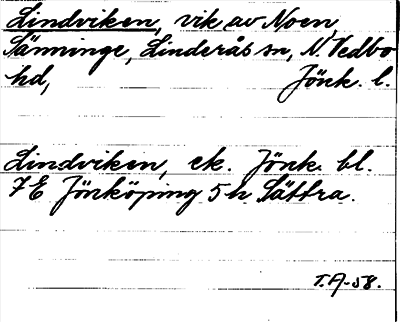 Lindviken, vik av Noen
Sänninge, Linderås sn, N. Vedbo
hd, Jönk. l.
Lindviken, ek. Jönk. bl.
7E Jönköping 5h Sättra.
T.A-58.